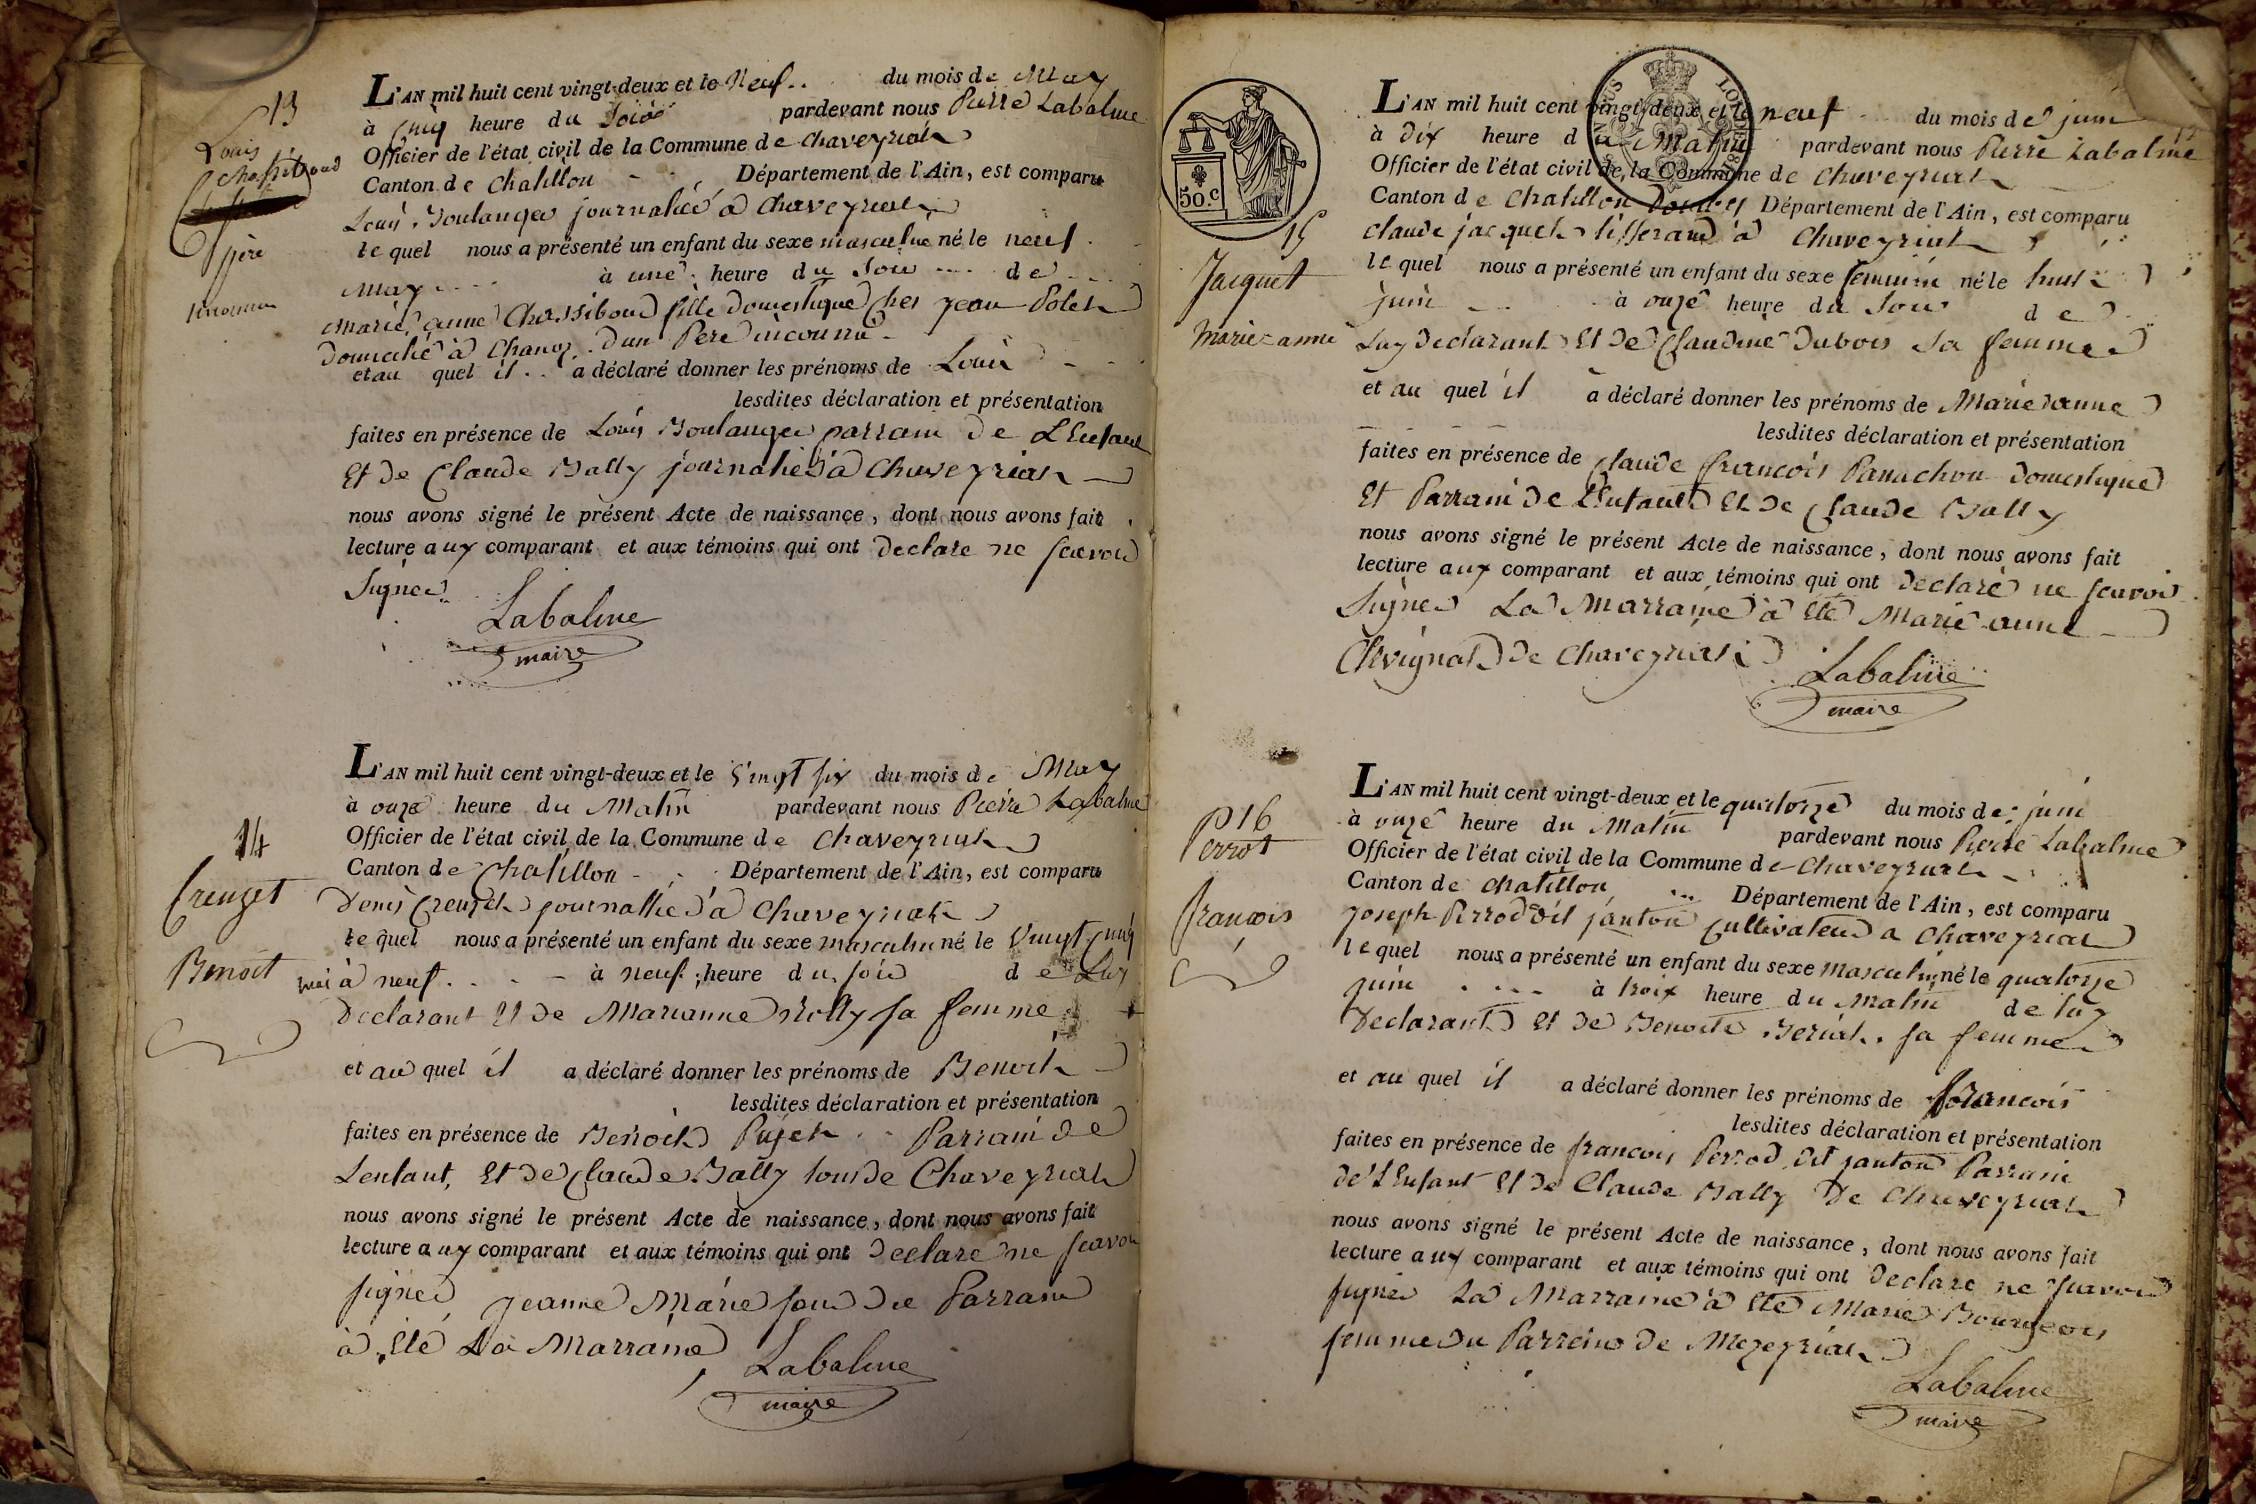 13
Louis
Chassiboud
père
inconnu
L'AN mil huit cent vingt-deux et le Neuf du mois de May
à cinq heure du Soir pardevant nous Pierre Labalme
Officier de l'état civil de la Commune de Chaveyriat
Canton de Chatillon Département de l'Ain, est comparu
Louis Boulanger journalié à Chaveyriat
le quel nous a présenté un enfant du sexe masculin né le neuf
may à une heure du Soir de
marie anne Chassiboud fille domestique Ches jean Polet
domicilié à Chanoz d'un Pere inconnu
et au quel il a déclaré donner les prénoms de Louis
lesdites déclaration et présentation
faites en présence de Louis Boulanger parrain de L'Enfant
Et de Claude Bally journalié à Chaveyriat
nous avons signé le présent Acte de naissance, dont nous avons fait
lecture aux comparant et aux témoins qui ont declaré ne scavoir
Signer
Labalme
maire
14
Creuzet
Benoit
L'AN mil huit cent vingt-deux et le Vingt six du mois de May
à onze heure du Matin pardevant nous Pierre Labalme
Officier de l'état civil de la Commune de Chaveyriat
Canton de Chatillon Département de l'Ain, est comparu
Denis Creuzet journallié à Chaveyriat
le quel nous a présenté un enfant du sexe masculin né le Vingt cinq
mai à neuf à neuf heure du soir de Luy
Declarant Et de Marianne Nolly sa femme
et au quel il a déclaré donner les prénoms de Benoit
lesdites déclaration et présentation
faites en présence de Benoit Pujet Parrain de
Lenfant, Et de Claude Bally tous de Chaveyriat
nous avons signé le présent Acte de naissance, dont nous avons fait
lecture aux comparant et aux témoins qui ont declaré ne scavoir
signer jeanne Marie du Parrain
à Eté La Marraine
Labalme
maire
50.c
15
Jacquet
Marie anne
L'AN mil huit cent vingt-deux et le neuf du mois de juin
à dix heure du Matin pardevant nous Pierre Labalme
Officier de l'état civil de la Commune de Chaveyriat
Canton de Chatillon Département de l'Ain, est comparu
Claude jacquet tisserand à Chaveyriat
le quel nous a présenté un enfant du sexe feminin né le huit
juin à onze heure du Soir de
Luy declarant Et de Claudine Dubois sa femme
et au quel il a déclaré donner les prénoms de Marie anne
lesdites déclaration et présentation
faites en présence de Claude francois Panachon domestique
Et Parrain de L'Enfant Et de Claude Bally
nous avons signé le présent Acte de naissance, dont nous avons fait
lecture aux comparant et aux témoins qui ont declaré ne scavoir
Signer La Marraine à Eté Marie anne
Chevignat de Chaveyriat
Labalme
maire
16
Perrot
francois
L'AN mil huit cent vingt-deux et le quatorze du mois de juin
à onze heure du Matin pardevant nous Pierre Labalme
Officier de l'état civil de la Commune de Chaveyriat
Canton de Chatillon Département de l'Ain, est comparu
joseph Perrod dit janton Cultivateur a Chaveyriat
le quel nous a présenté un enfant du sexe masculin né le quatorze
juin à troix heure du Matin de luy
Declarant Et de Benoite Beriat sa femme
et au quel il a déclaré donner les prénoms de francois
lesdites déclaration et présentation
faites en présence de francois Perrod dit janton Parrain
de L'Enfant Et de Claude Bally de Chaveyriat
nous avons signé le présent Acte de naissance, dont nous avons fait
lecture aux comparant et aux témoins qui ont declaré ne scavoir
signer La Marraine à Eté Marie Bourgeois
femme du Parrein de Mezeyriat
Labalme
maire